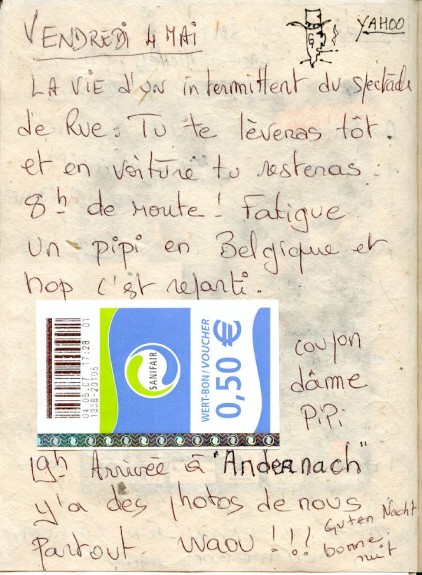 VENDREDI 4 MAI !
YAHOO
LA VIE d'un intermittent du spectacle
de Rue. Tu te lèveras tôt.
et en voiture tu resteras.
8h de route ! Fatigue
un pipi en Belgique et
hop c'est reparti.
04.05.07 17:28 01
SANIFAIR
WERT-BON/VOUCHER
0,50 €
coupon
dâme
PiPi
19h Arrivée à "Andernach"
y'a des photos de nous
partout. waou !!!
Guten Nacht
bonne
nuit